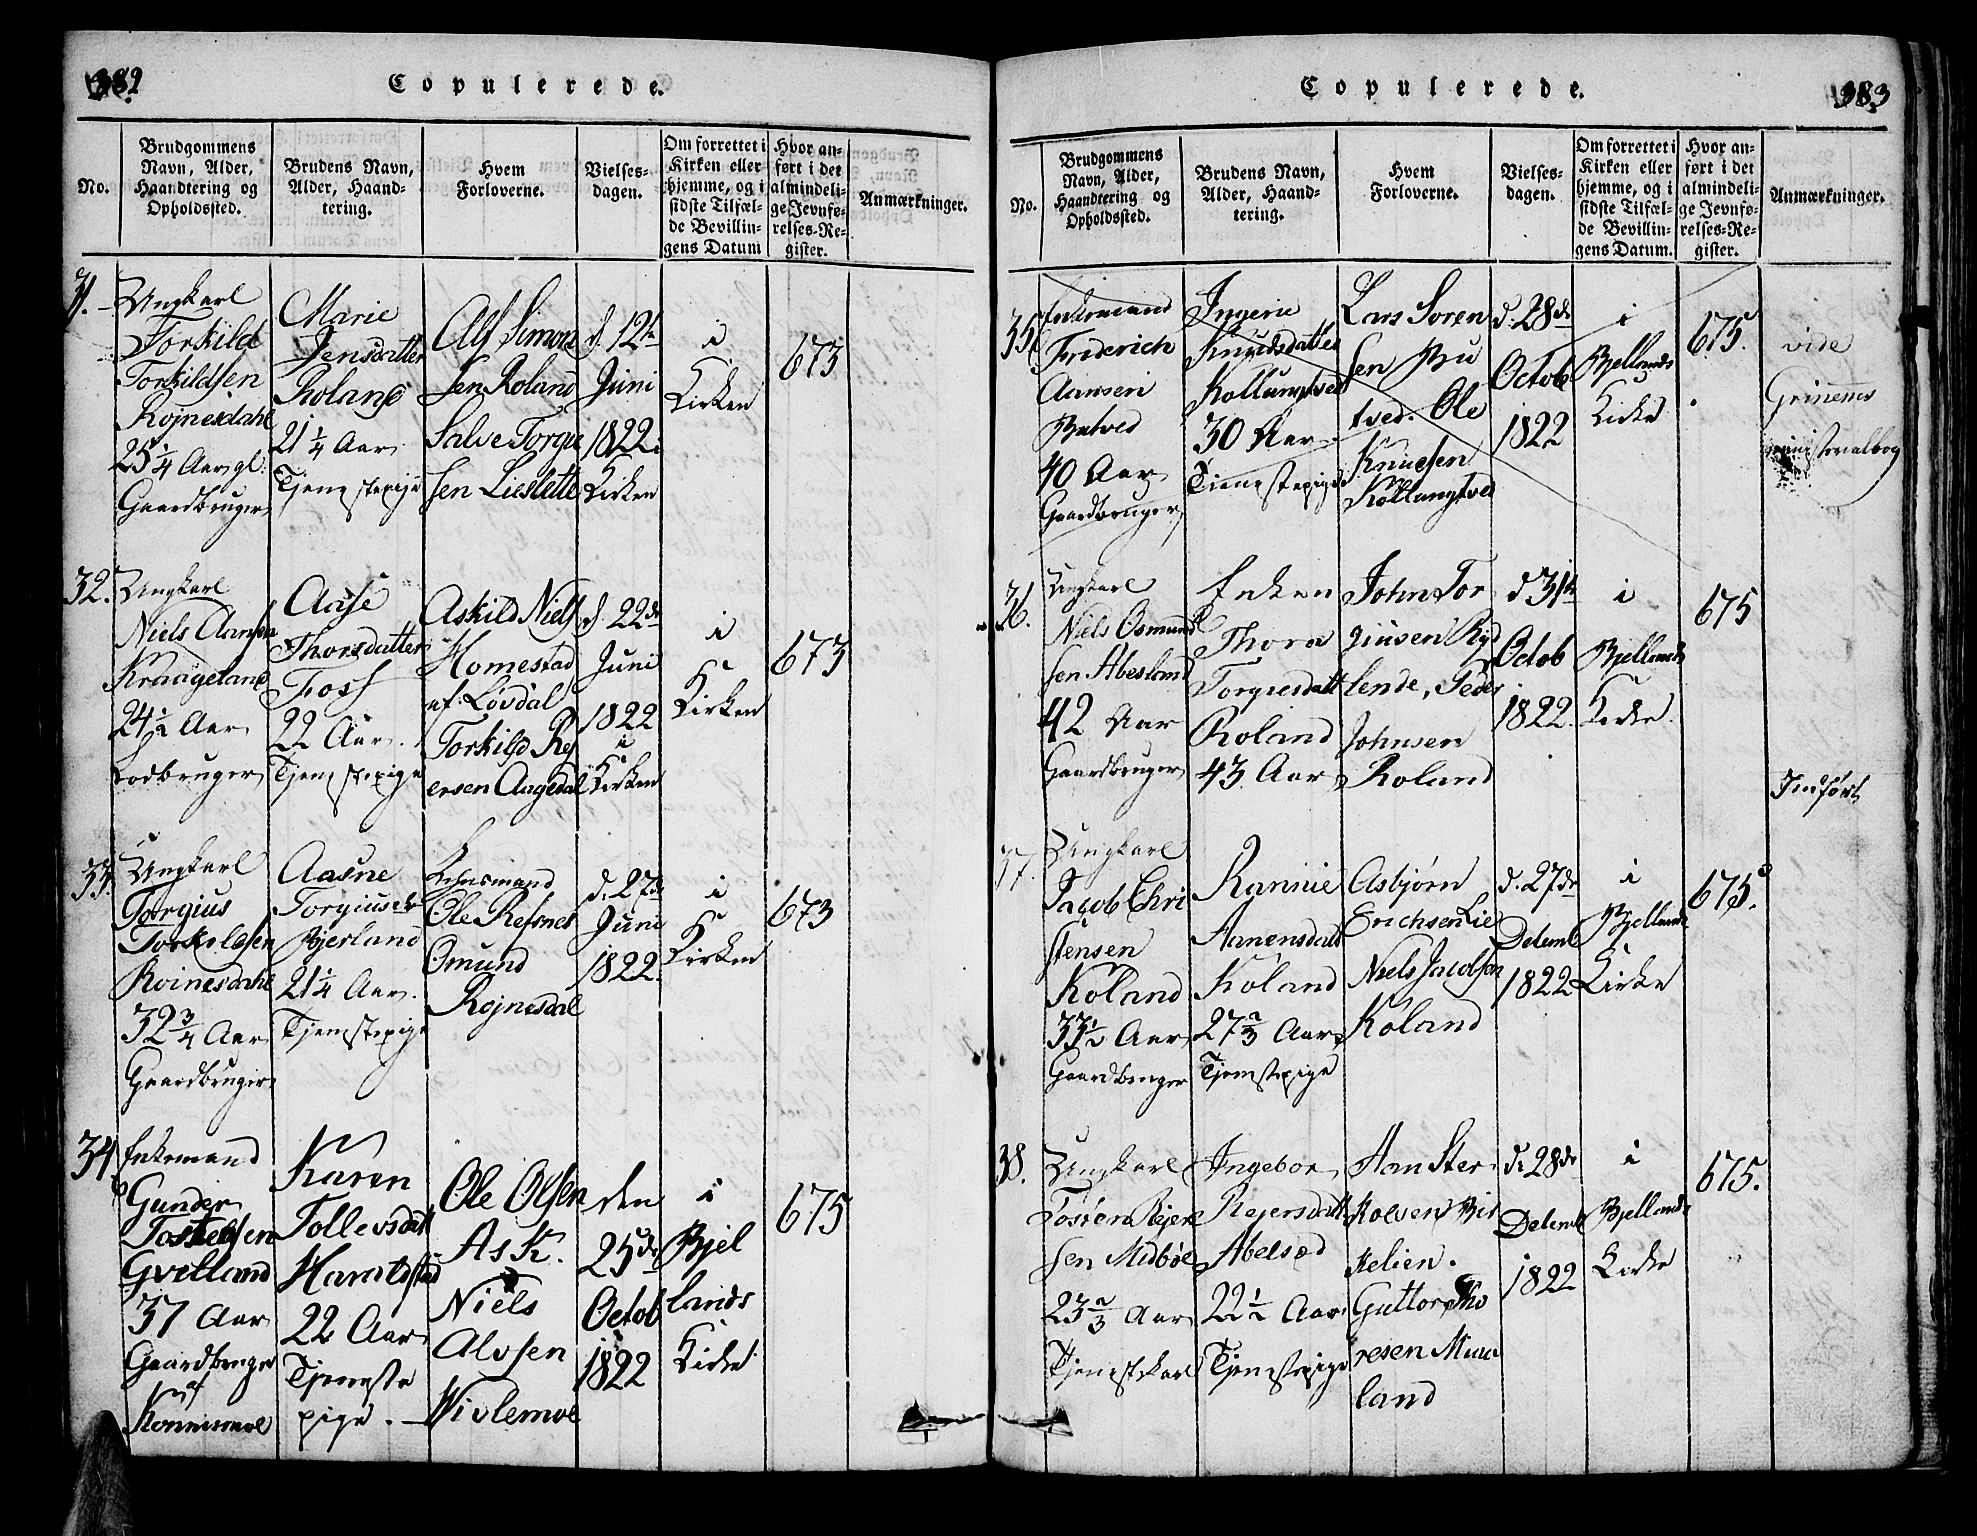 382
Copulerede.
No.
Brudgommens
Navn, Alder,
Haandtering og
Opholdssted.
Brudens Navn,
Alder, Haand-
tering.
Hvem
Forloverne.
Vielses-
dagen.
Om forrettet i
Kirken eller
hjemme, og i
sidste Tilfæl-
de Bevillin-
gens Datum
Hvor an-
ført i det
almindeli-
ge Jevnfø-
relses-Re-
gister.
Anmærkninger.
31.
Ungkarl
Torkild
Torkildsen
Rojnesdahl
25 1/4 Aar gl.
Gaardbruger
Marie
Jensdatter
Roland
21 1/4 Aar
Tjenstepige
Alf Simon
sen Roland
Salve Torgu
sen Lieslette
d. 12te
Juni
1822.
Kirken
i
Kirken
673
32.
Ungkarl
Niels Aansen
Kraageland
24 1/2 Aar
Jordbruger
Aase
Thorsdatter
Foss
22 Aar.
Tjenstepige
Askild Niels
Homestad
af Løvdal
Torkild Rej
ersen Aagedal
d. 22de
Juni
1822
i
Kirken
i
Kirken
673
33.
Ungkarl
Torgius
Torkildsen
Roinesdahl
32 3/4 Aar
Gaardbruger
Aasne
Torgiusdr
Bjerland
21 1/4 Aar.
Tjenstepige
Lehnsmand
Ole Refsnes
Omund
Rojnesdal
d. 27de
Juni
1822.
i
Kirken
673
34
Enkemand
Gunder
Tostelsen
Gvelland
37 Aar
Gaardbruger
paa
Konnismoe
Karen
Tollevsdatt
Haraldstad
22 Aar
Tjeneste
pige.
Ole Olsen
Ask.
Niels
Alvsen
Wivlemoe
den
25de
Octob
1822
i
Bjel
lands
Kirke
675
383
Copulerede.
No.
Brudgommens
Navn, Alder,
Haandtering og
Opholdssted.
Brudens Navn,
Alder, Haand-
tering.
Hvem
Forloverne.
Vielses-
dagen.
Om forrettet i
Kirken eller
hjemme, og i
sidste Tilfæl-
de Bevillin-
gens Datum.
Hvor an-
ført i det
almindeli-
ge Jevnfø-
relses-Re-
gister.
Anmærkninger.
35.
Enkemand
Friderich
Aansen
Butved
40 Aar
Gaardbruger
Ingerie
Knudsdatter
Kollungtved
30 Aar
Tienestepige
Lars Soren
sen Bu
tved. Ole
Knudsen
Kollungtved
d. 28de
Octob
1822
i
Bjellands
Kirke
675.
vide
Grinems
ministerialbog
36.
Ungkarl
Niels Osmund
sen Abesland
42 Aar
Gaardbruger
Enken
Thora
Torgiesdatt
Roland
43 Aar
John Tor
giusen Ryd
lende, Peder
Johnsen
Roland
d 31te
Octob
1822.
i
Bjellands
Kirke.
675
Indført
37.
Ungkarl
Jacob Chri
stensen
Koland
33 1/2 Aar
Gaardbruger
Rannie
Aanensdatt
Koland
27 2/3 Aar
Tjenstepige
Asbjørn
Erichsen Lie
Niels Jacobsen
Koland
d. 27de
Decemb
1822
i
Bjellands
Kirke
675.
38.
Ungkarl
Tosten Rejer
sen Midbøe
23 2/3 Aar
Tjenstkarl
Ingebor
Rejersdatt
Abelsød
22 1/2 Aar
Tjenstepige
Han Ster
Kolsen Bir
kelien.
Guttor Tho
resen Muu
land
d. 28de
Decemb
1822
i
Bjellands
Kirke
675.